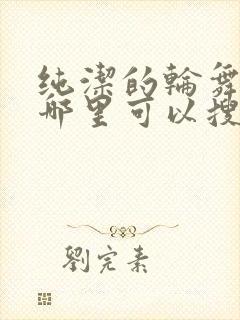 纯潔的輪舞
哪里可以搜
劉完素